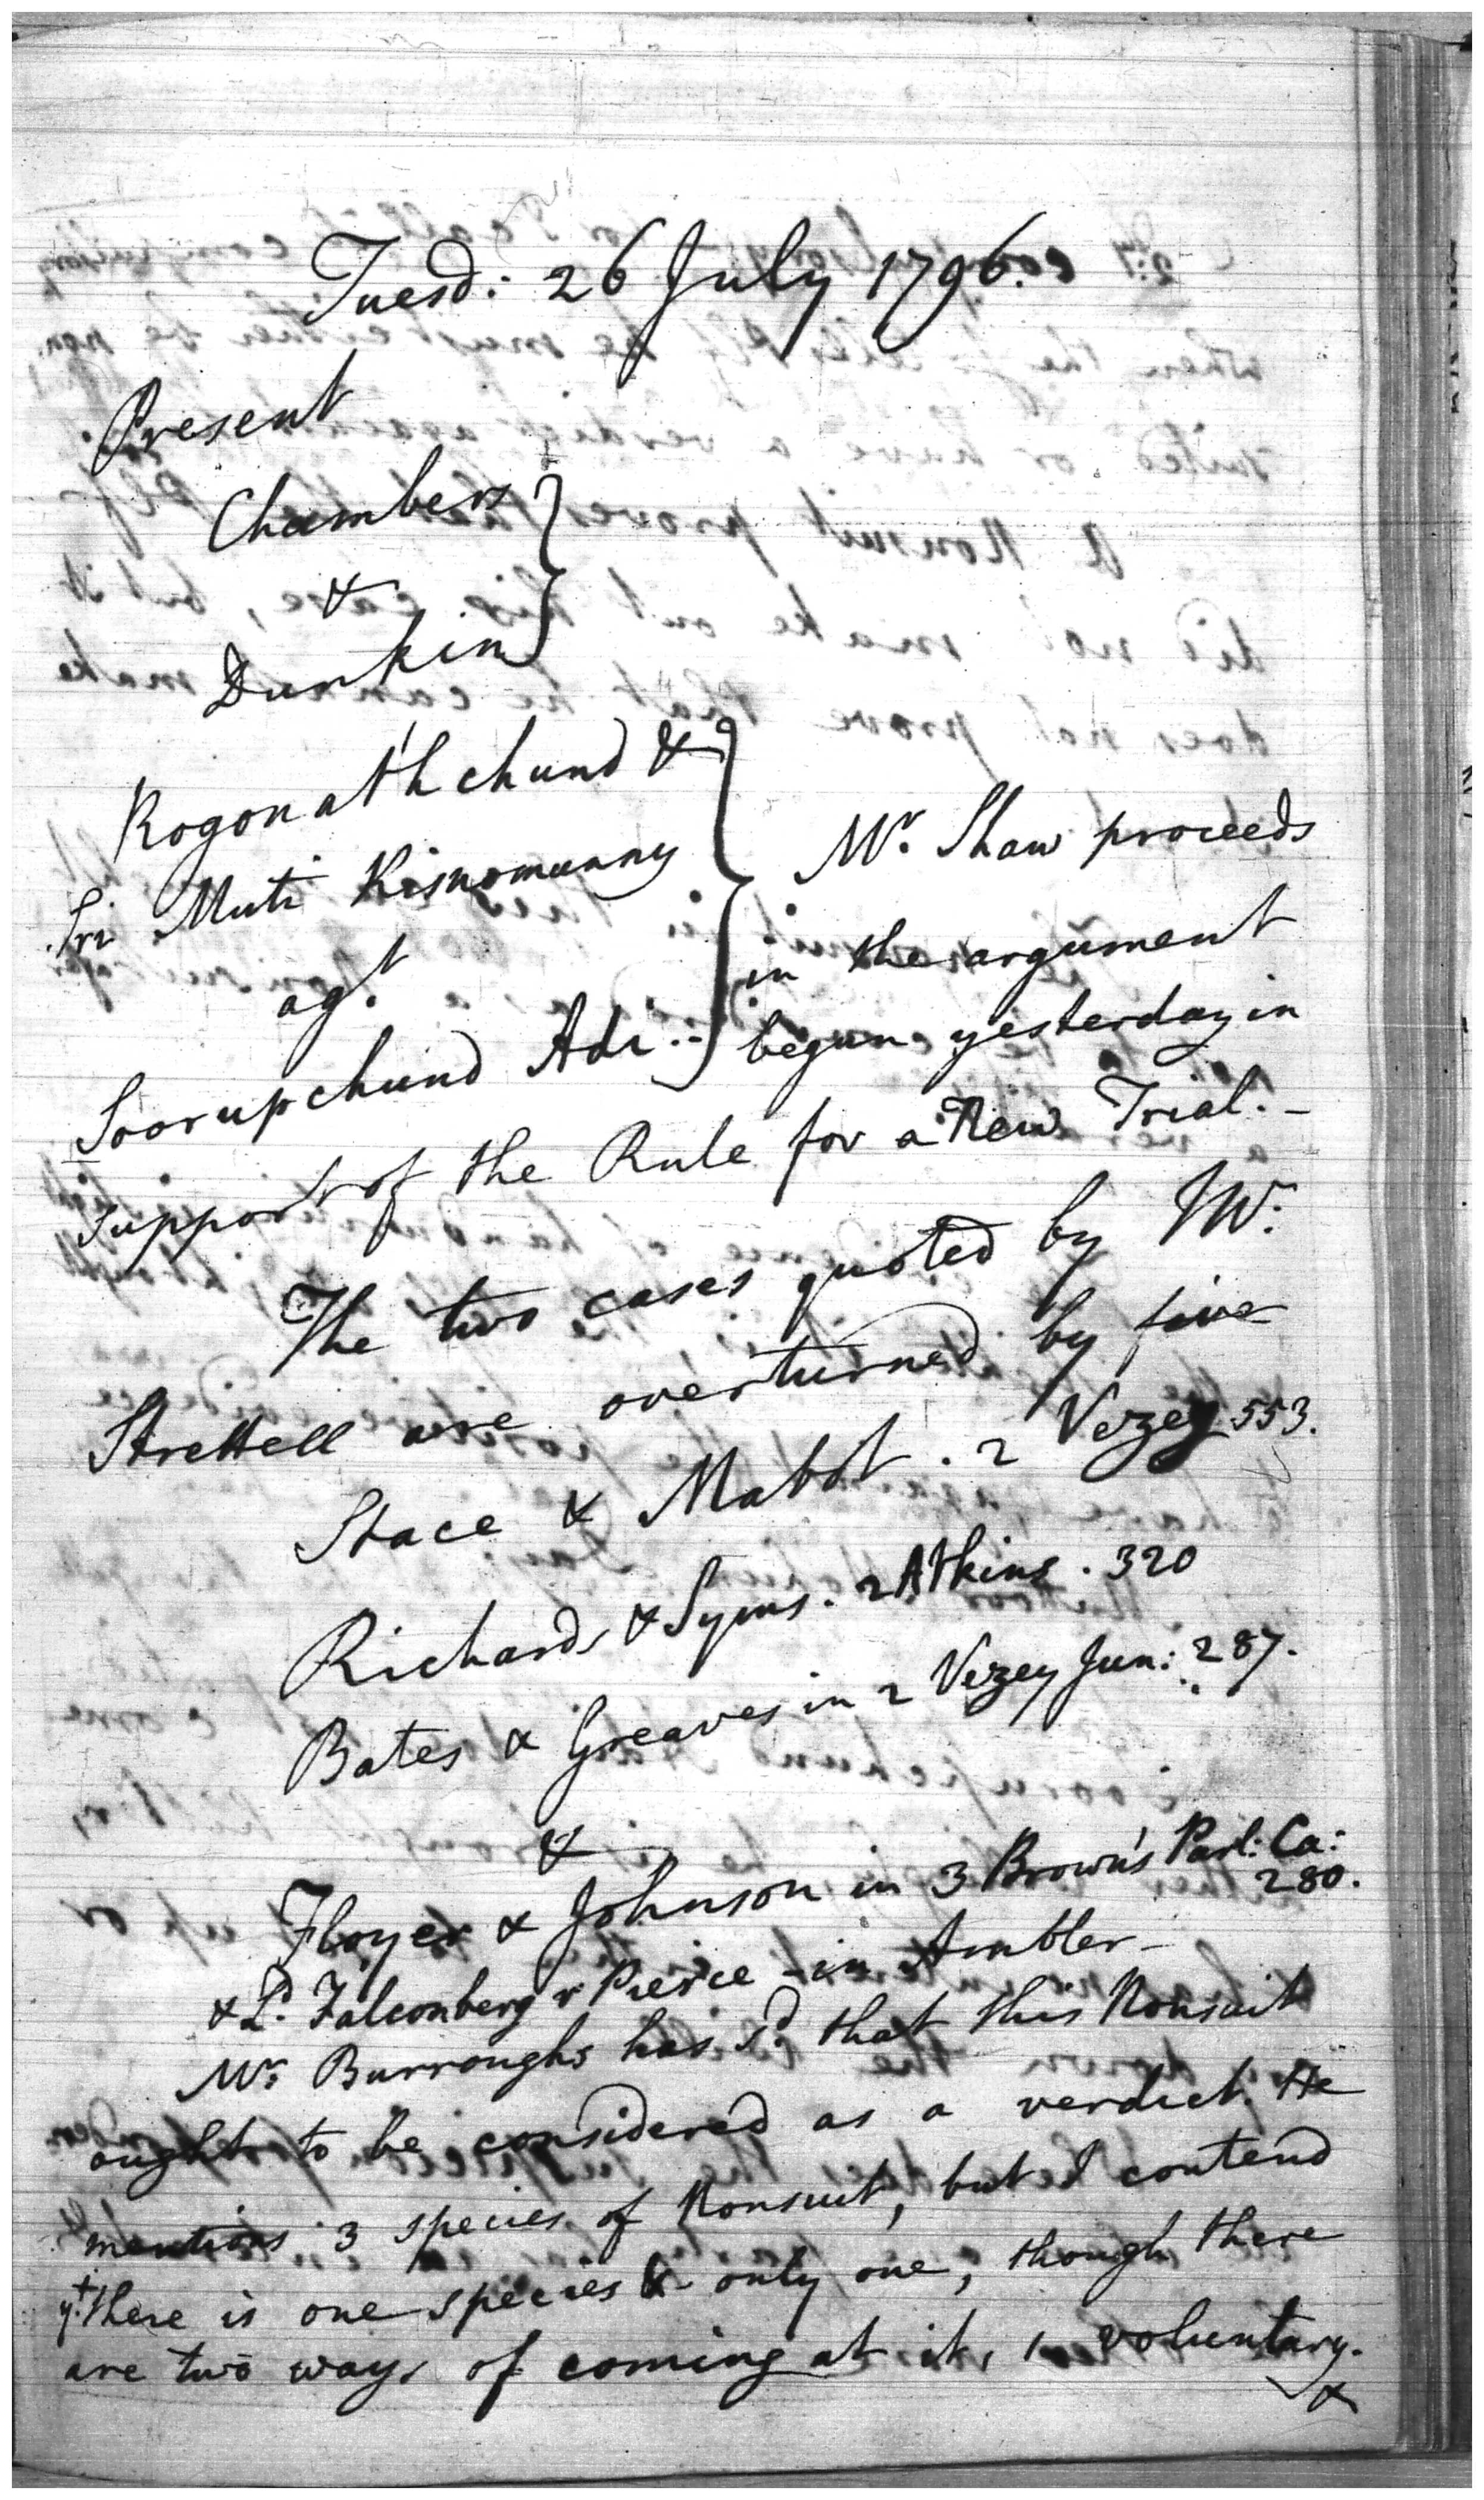 Tuesd: 26 July 1796.
Present
Chambers
&
Dunkin
Rogonathchund &
Sri Muti Kisnomunny
agt
Soorupchund Adi:
Mr. Shaw proceeds
in the argument
begun yesterday in
support of the Rule for a New Trial.-
The two cases quoted by Mr:
Strettell are overturned by five
Stace & Mabot. 2 Vezey 553.
Richards & Syms. 2 Atkins. 320
Bates & Greaves in 2 Vezey Jun: 287.
&
Floyer & Johnson in 3 Brown's Parl: Ca:
280.
& Ld. Falconberg v Pierce - in Ambler-
Mr. Burroughs has sd. that this Nonsuit
ought to be considered as a verdict. He
mentions 3 species of Nonsuit, but I contend
yt there is one species & only one, though there
are two ways of coming at it, 1 voluntary.
&